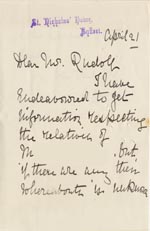 St. Nicholas' Home,
April 21
Dear Mr. Rudolf
I have
endeavoured to get
information respecting
the relatives of
M , but,
if there are any their
whereabouts is unknown